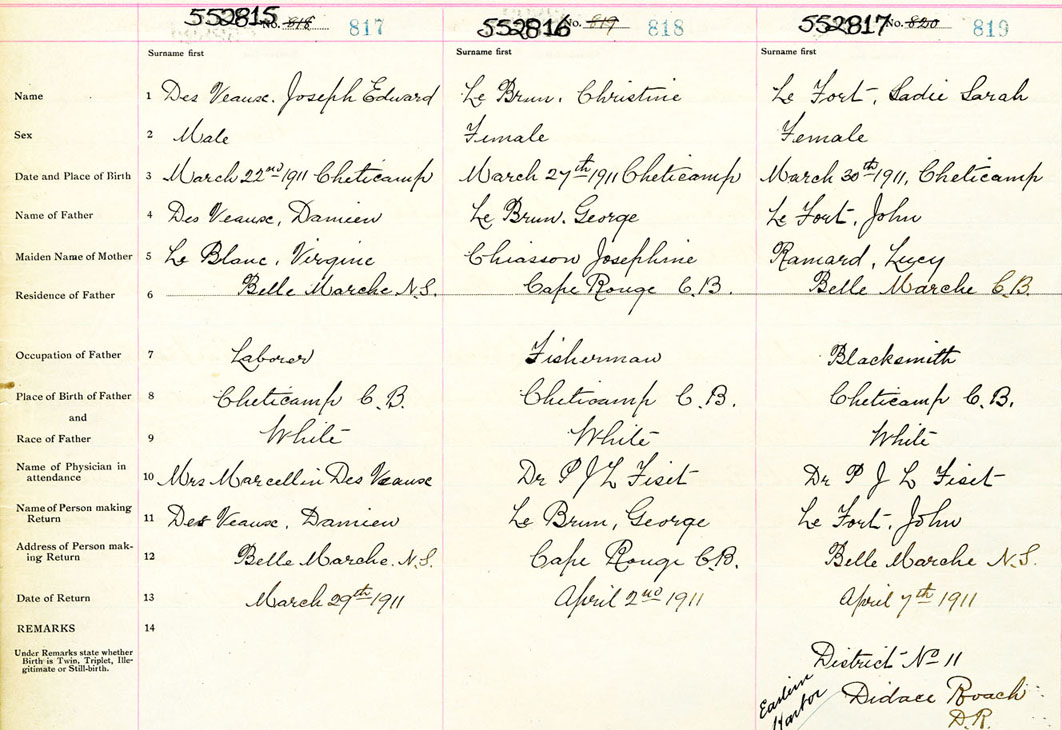 552815 No. 818 817 552816 No. 819 818 552817 No. 820 819
Surname first Surname first Surname first
Name 1 Des Veause. Joseph Edward Le Brun. Christine Le Fort, Sadie Sarah
Sex 2 Male Female Female
Date and Place of Birth 3 March 22nd 1911 Cheticamp March 27th 1911 Cheticamp March 30th 1911, Cheticamp
Name of Father 4 Des Veause, Damien Le Brun. George Le Fort, John
Maiden Name of Mother 5 Le Blanc, Virginie Chiasson Josephine Ramard, Lucy
Residence of Father 6 Belle Marche N.S. Cape Rouge C.B. Belle Marche C.B.
Occupation of Father 7 Laborer Fisherman Blacksmith
Place of Birth of Father 8 Cheticamp C.B. Cheticamp C.B. Cheticamp C.B.
and
Race of Father 9 White White White
Name of Physician in
attendance 10 Mrs Marcellin Des Veause Dr P J L Fiset Dr P J L Fiset
Name of Person making
Return 11 Des Veause, Damien Le Brun, George Le Fort, John
Address of Person mak-
ing Return 12 Belle Marche. N.S. Cape Rouge C.B. Belle Marche N.S.
Date of Return 13 March 29th 1911 April 2nd 1911 April 7th 1911
REMARKS 14
Under Remarks state whether
Birth is Twin, Triplet, Ille-
gitimate or Still-birth.
District No 11
Eastern
Harbor
Didace Roach
D.R.